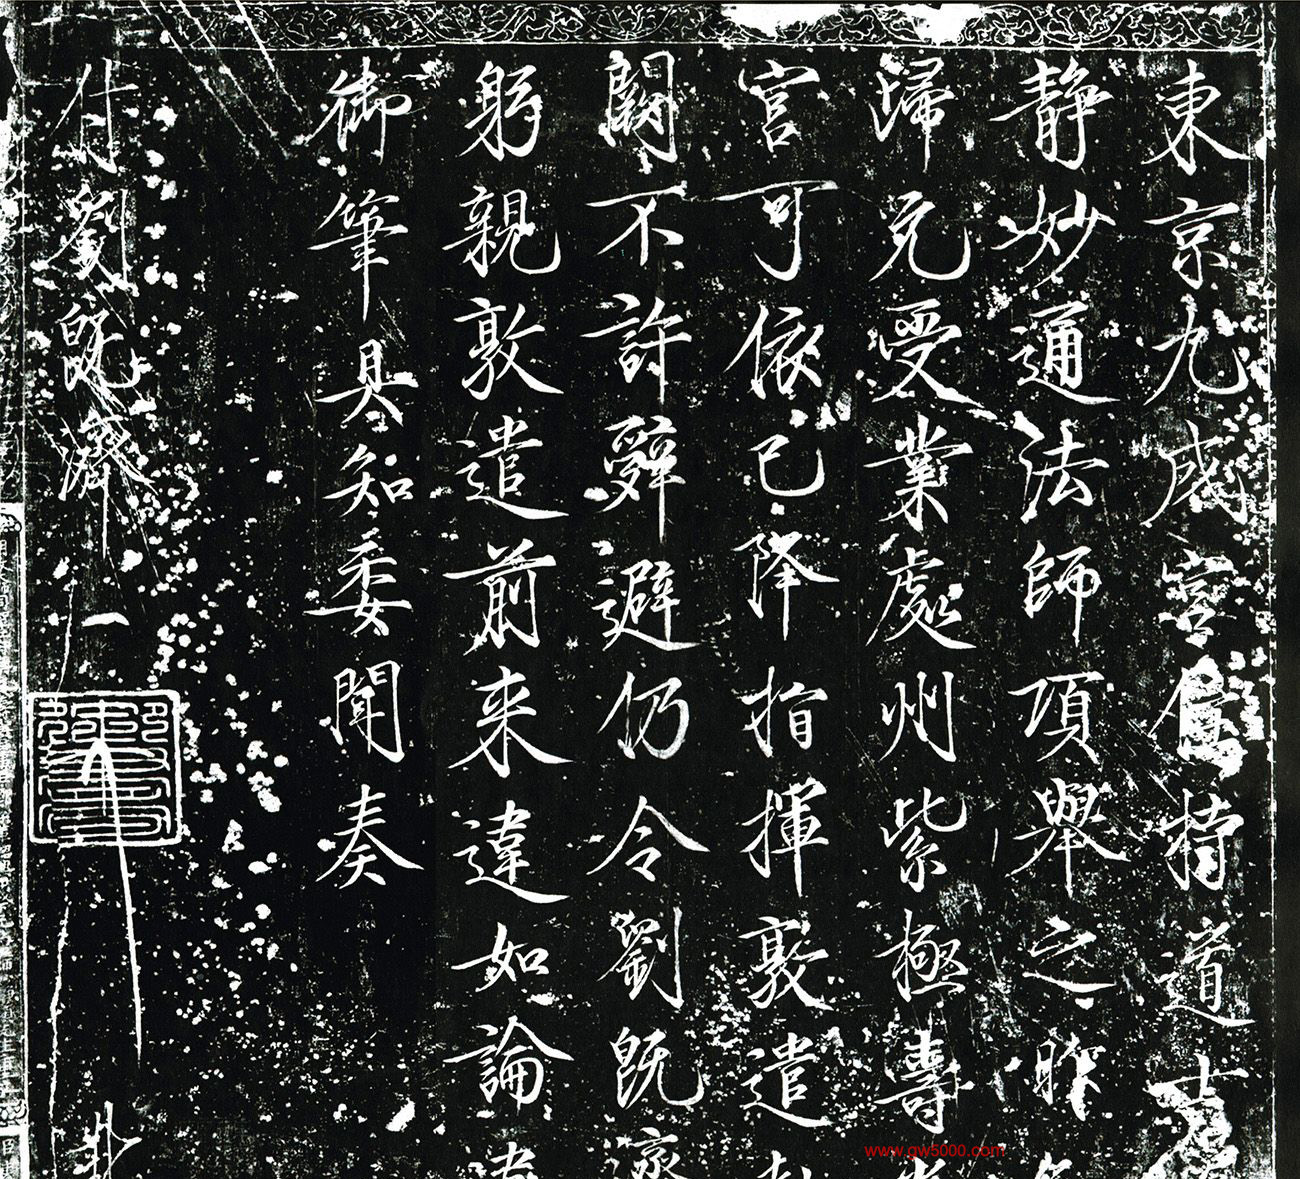 東京九成宮住持道士
静妙通法師項舉之昨
歸元受業處州紫極壽
宮可依已降指揮敦遣赴
闕不許辭避仍令劉既濟
躬親敦遣前来違如論
御筆具知委聞奏
付劉既濟
www.gw5000.com